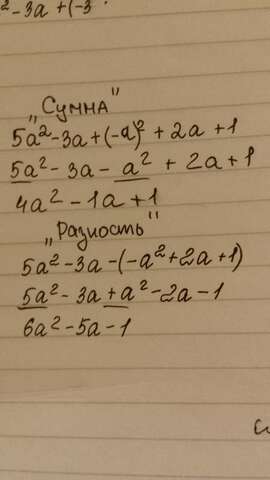 ²-3a+(-3
„Сумма"
5a²-3a+(-a)²+2a+1
5a²-3a-a²+2a+1
4a²-1a+1
„Разность"
5a²-3a-(-a²+2a+1)
5a²-3a+a²-2a-1
6a²-5a-1